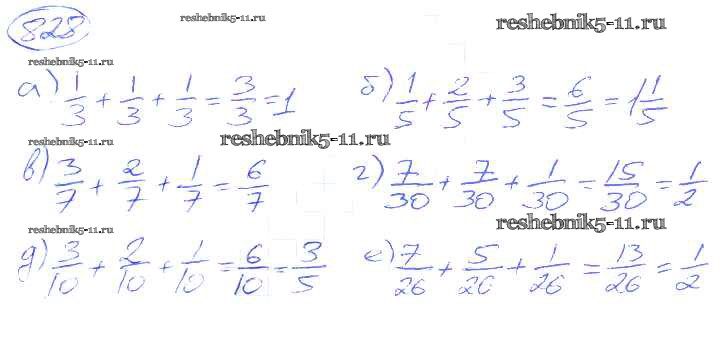 828
reshebnik5-11.ru
reshebnik5-11.ru
reshebnik5-11.ru
а) 1/3 + 1/3 + 1/3 = 3/3 = 1
б) 1/5 + 2/5 + 3/5 = 6/5 = 1 1/5
reshebnik5-11.ru
reshebnik5-11.ru
в) 3/7 + 2/7 + 1/7 = 6/7
г) 7/30 + 7/30 + 1/30 = 15/30 = 1/2
reshebnik5-11.ru
reshebnik5-11.ru
д) 3/10 + 2/10 + 1/10 = 6/10 = 3/5
е) 7/26 + 5/26 + 1/26 = 13/26 = 1/2